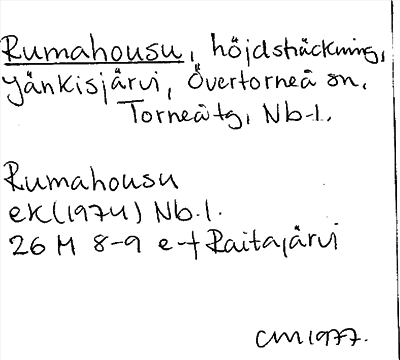 Rumahousu, höjdsträckning,
Jänkisjärvi, Övertorneå sn.
Torneåtg, Nb-l.
Rumahousu
ek (1974) Nb.l.
26 M 8-9 e-f Raitajärvi
CM 1977.